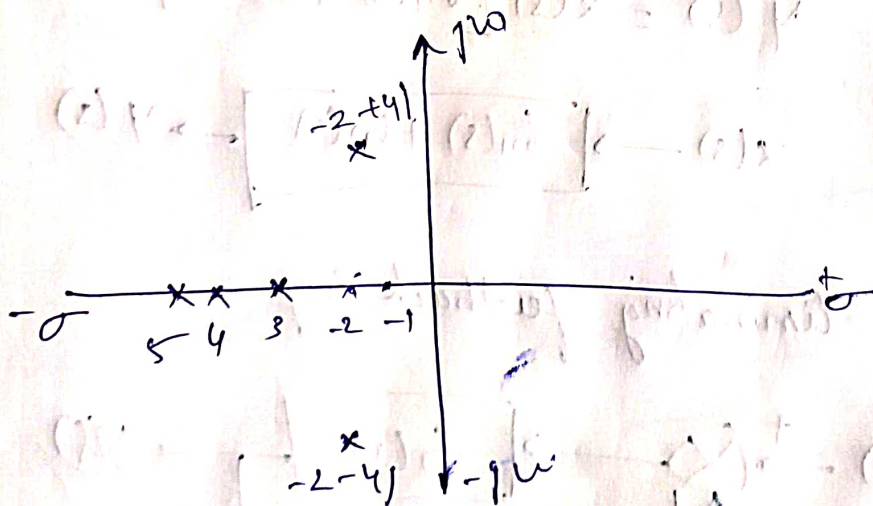 jω
-2+4j
-σ
+σ
5 4 3 -2 -1
-2-4j
-jω